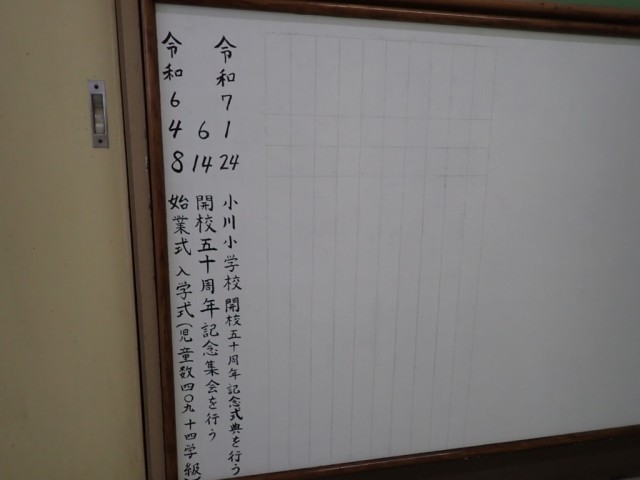 令和6 4 8 始業式 入学式(児童数四〇九 十四学級
6 14 開校五十周年記念集会を行う
令和7 1 24 小川小学校 開校五十周年記念式典を行う